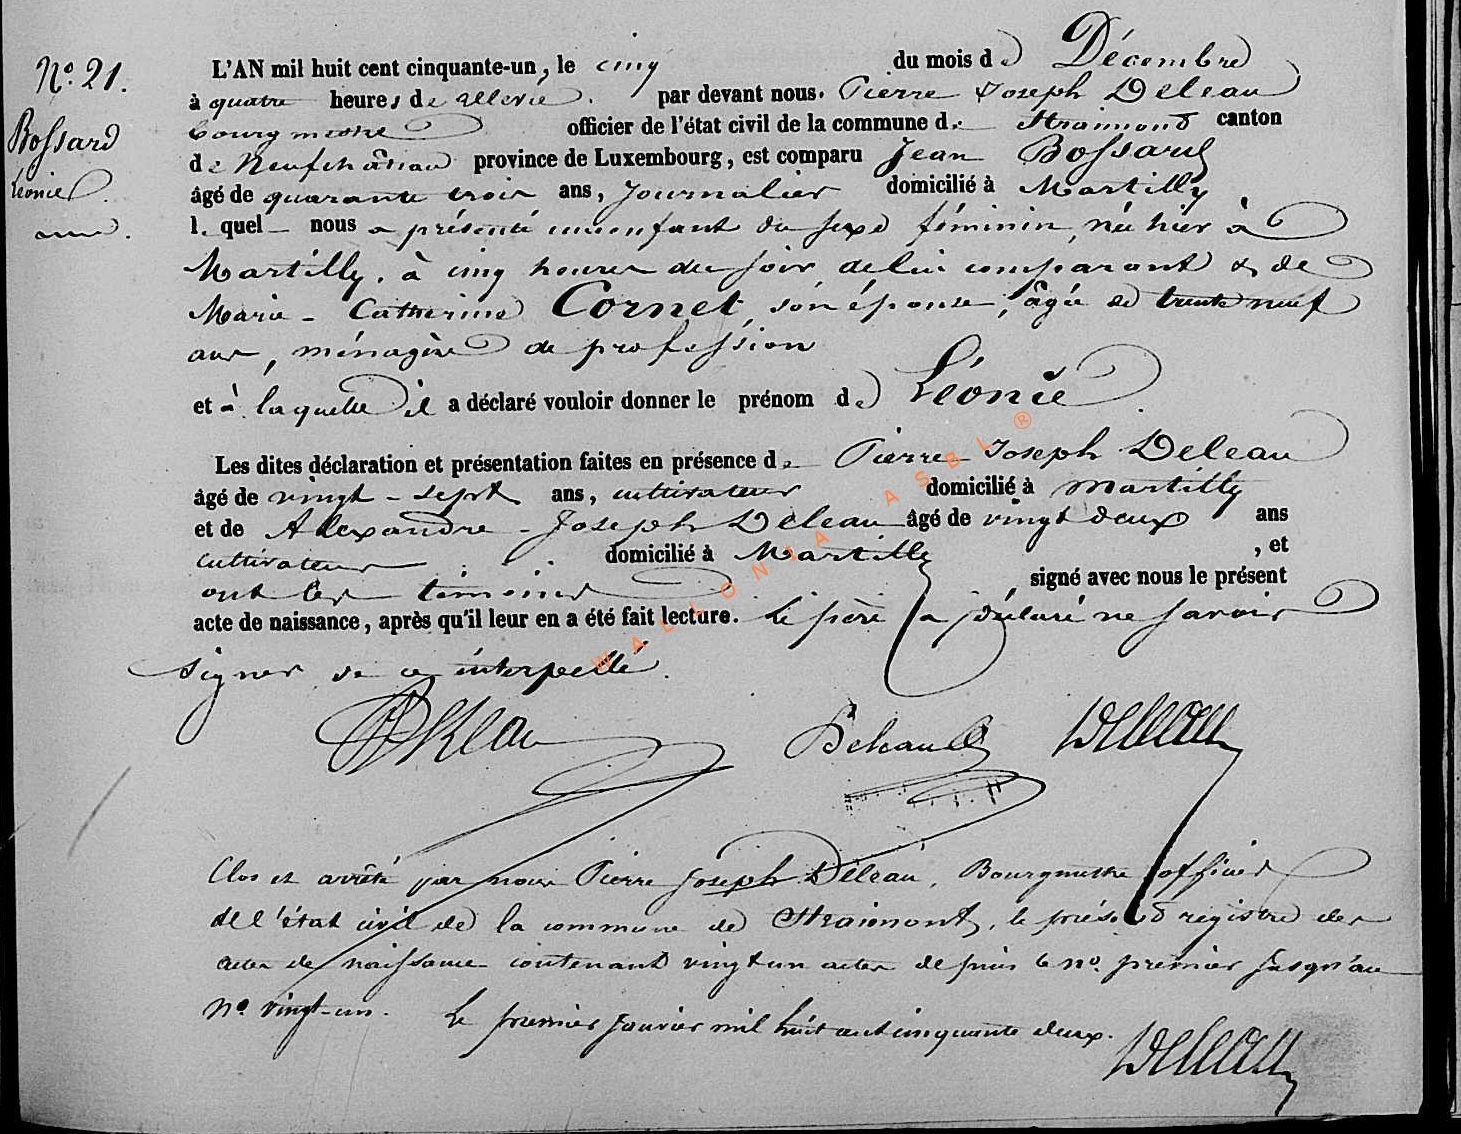 N.° 21.
Bossard
Léonie
L'AN mil huit cent cinquante-un, le cinq du mois de Décembre
à quatre heures de relevée. par devant nous. Pierre Joseph Deleau
bourgmestre officier de l'état civil de la commune de Straimont canton
de Neufchâteau province de Luxembourg, est comparu Jean Bossard
âgé de quarante trois ans, journalier domicilié à Martilly
lequel nous a présenté un enfant du sexe féminin, née hier à
Martilly, à cinq heures du soir de lui comparant & de
Marie-Catherine Cornet, son épouse, âgée de trente neuf
ans, ménagère de profession
et à laquelle il a déclaré vouloir donner le prénom de Léonie.
Les dites déclaration et présentation faites en présence de Pierre-Joseph Deleau
âgé de vingt-sept ans, cultivateur domicilié à Martilly
et de Alexandre-Joseph Deleau âgé de vingt deux ans
cultivateur domicilié à Martilly, et
ont les témoins signé avec nous le présent
acte de naissance, après qu'il leur en a été fait lecture. Le père a déclaré ne savoir
signer de ce interpellé.
Deleau Deleau Deleau
Clos et arrêté par nous Pierre Joseph Deleau, Bourgmestre officier
de l'état civil de la commune de Straimont, le présent registre des
actes de naissance contenant vingt un actes depuis le n°. premier jusqu'au
N° vingt-un. Le premier janvier mil huit cent cinquante deux.
Deleau
WALLONIA ASBL ®